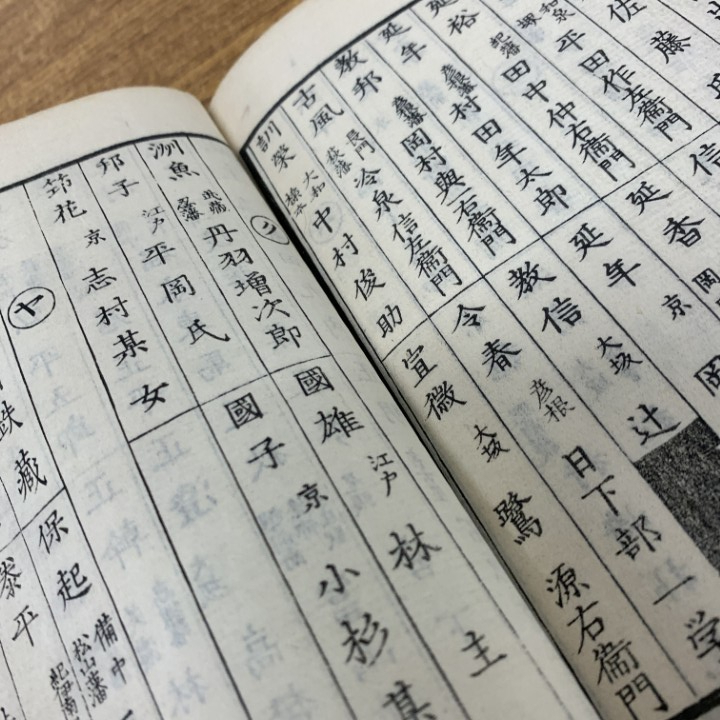 平田作左衛門
延裕 紀藩 田中仲右衛門
延年 村田年太郎
教邦 岡村與一右衛門
古風 長門萩藩 冷泉信左衛門
大和橋本 中村俊助
延香 岡
延年 京 岡
教信 大坂 辻
令春 彦根 日下部一学
宣徴 大坂 鷺源右衛門
ク
丹羽増次郎
邦子 江戸 平岡氏
京 志村某女
國雄 江戸 林主
國子 京 小杉某
ヤ
鉄藏
保起 備中松山藩
泰平